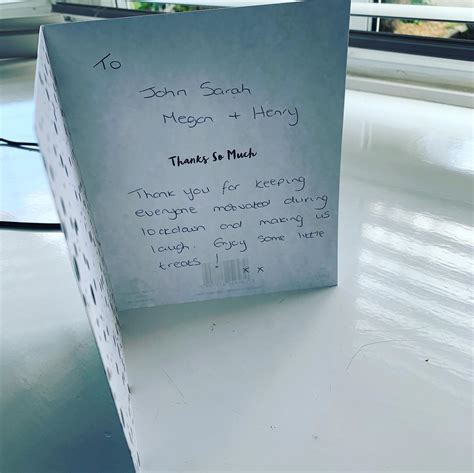 To
John Sarah
Megan + Henry
Thanks So Much
Thank you for keeping
everyone motivated during
lockdown and making us
laugh. Enjoy some little
treats !
x x